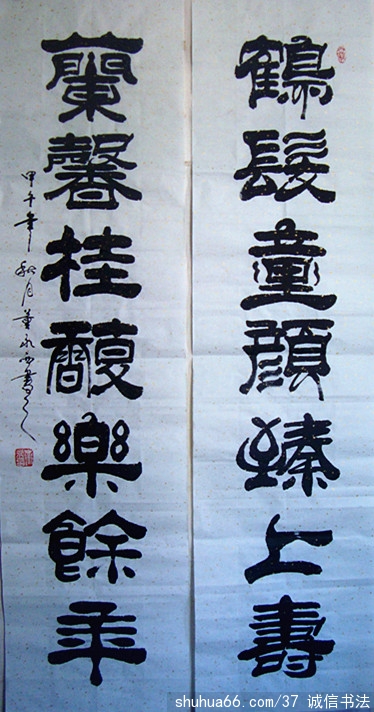 鶴髮童顏臻上壽
蘭馨桂馥樂餘年
甲午年秋月董永
shuhua66.com/37 诚信书法